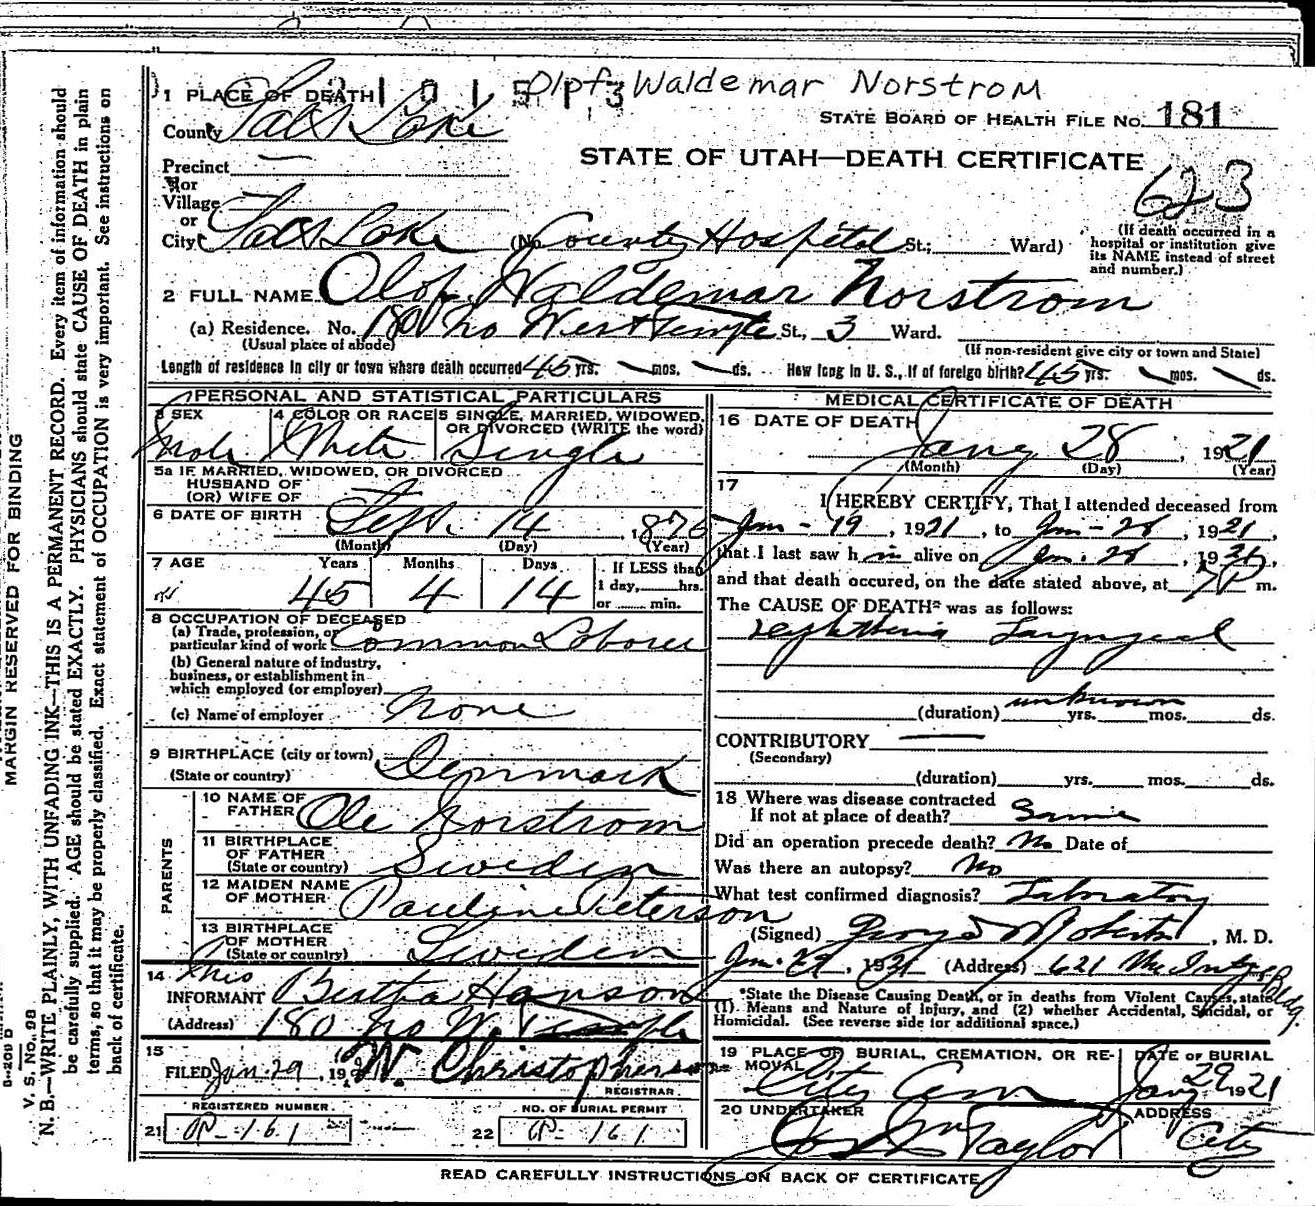 Olof Waldemar Norstrom
1 PLACE OF DEATH 2101513
County Salt Lake
STATE BOARD OF HEALTH FILE NO. 181
STATE OF UTAH—DEATH CERTIFICATE
623
Precinct —
or
Village
or
City Salt Lake (No. County Hospital St.; Ward)
(If death occurred in a
hospital or institution give
its NAME instead of street
and number.)
2 FULL NAME Olof Waldemar Norstrom
(a) Residence. No. 180 No West Temple St., 3 Ward.
(Usual place of abode)
(If non-resident give city or town and State)
Length of residence in city or town where death occurred 45 yrs. — mos. — ds. How long in U. S., if of foreign birth? 45 yrs. — mos. — ds.
PERSONAL AND STATISTICAL PARTICULARS
3 SEX
Male
4 COLOR OR RACE
White
5 SINGLE, MARRIED, WIDOWED,
OR DIVORCED (WRITE the word)
Single
5a IF MARRIED, WIDOWED, OR DIVORCED
HUSBAND OF
(OR) WIFE OF
6 DATE OF BIRTH Sept. 14, 1875
(Month) (Day) (Year)
7 AGE Years Months Days If LESS than
1 day, hrs.
or min.
45 4 14
8 OCCUPATION OF DECEASED
(a) Trade, profession, or
particular kind of work Common Laborer
(b) General nature of industry,
business, or establishment in
which employed (or employer)
(c) Name of employer None
9 BIRTHPLACE (city or town)
(State or country) Denmark
PARENTS
10 NAME OF
FATHER Ole Norstrom
11 BIRTHPLACE
OF FATHER
(State or country) Sweden
12 MAIDEN NAME
OF MOTHER Pauline Peterson
13 BIRTHPLACE
OF MOTHER
(State or country) Sweden
14
INFORMANT Mrs Bertha Hanson
(Address) 180 No W. Temple
15
FILED Jan. 29, 1921 W. Christopherson
REGISTRAR
REGISTERED NUMBER.
21 161
NO. OF BURIAL PERMIT
22 161
MEDICAL CERTIFICATE OF DEATH
16 DATE OF DEATH
Jany 28, 1921
(Month) (Day) (Year)
17
I HEREBY CERTIFY, That I attended deceased from
Jan - 19, 1921, to Jan - 28, 1921,
that I last saw him alive on Jan. 28, 1921,
and that death occured, on the date stated above, at 7 P m.
The CAUSE OF DEATH* was as follows:
Diphtheria Laryngeal
(duration) unknown yrs. mos. ds.
CONTRIBUTORY —
(Secondary)
(duration) yrs. mos. ds.
18 Where was disease contracted
If not at place of death? Same
Did an operation precede death? No Date of
Was there an autopsy? No
What test confirmed diagnosis? Laboratory
(Signed) Roberts, M. D.
Jan. 29, 1921 (Address) 621 McIntyre Bldg.
*State the Disease Causing Death, or in deaths from Violent Causes, state
(1) Means and Nature of Injury, and (2) whether Accidental, Suicidal, or
Homicidal. (See reverse side for additional space.)
19 PLACE OF BURIAL, CREMATION, OR RE-
MOVAL
City Cem
DATE OF BURIAL
Jany 29 1921
20 UNDERTAKER
Jos Wm Taylor
ADDRESS
City
READ CAREFULLY INSTRUCTIONS ON BACK OF CERTIFICATE
MARGIN RESERVED FOR BINDING
V. S. No. 98
N. B.—WRITE PLAINLY, WITH UNFADING INK—THIS IS A PERMANENT RECORD. Every item of information should
be carefully supplied. AGE should be stated EXACTLY. PHYSICIANS should state CAUSE OF DEATH in plain
terms, so that it may be properly classified. Exact statement of OCCUPATION is very important. See instructions on
back of certificate.